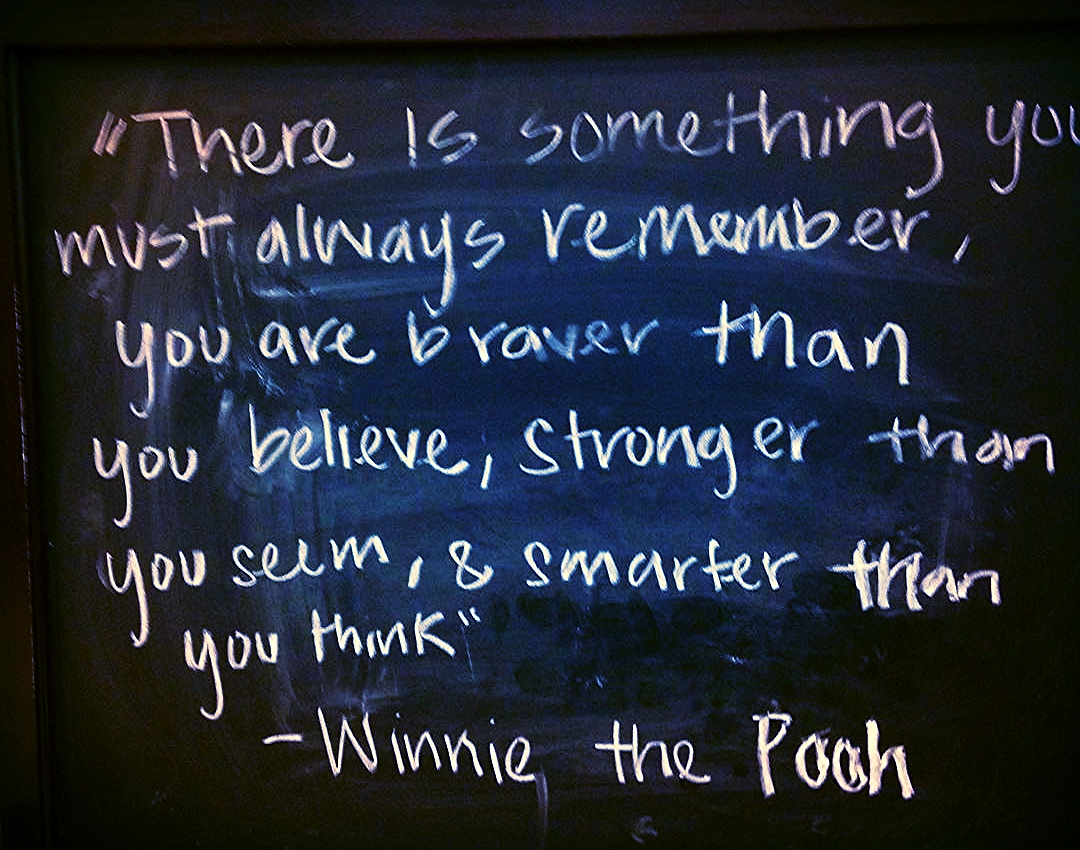 "There is something you
must always remember,
you are braver than
you believe, stronger than
you seem, & smarter than
you think"
- Winnie the Pooh